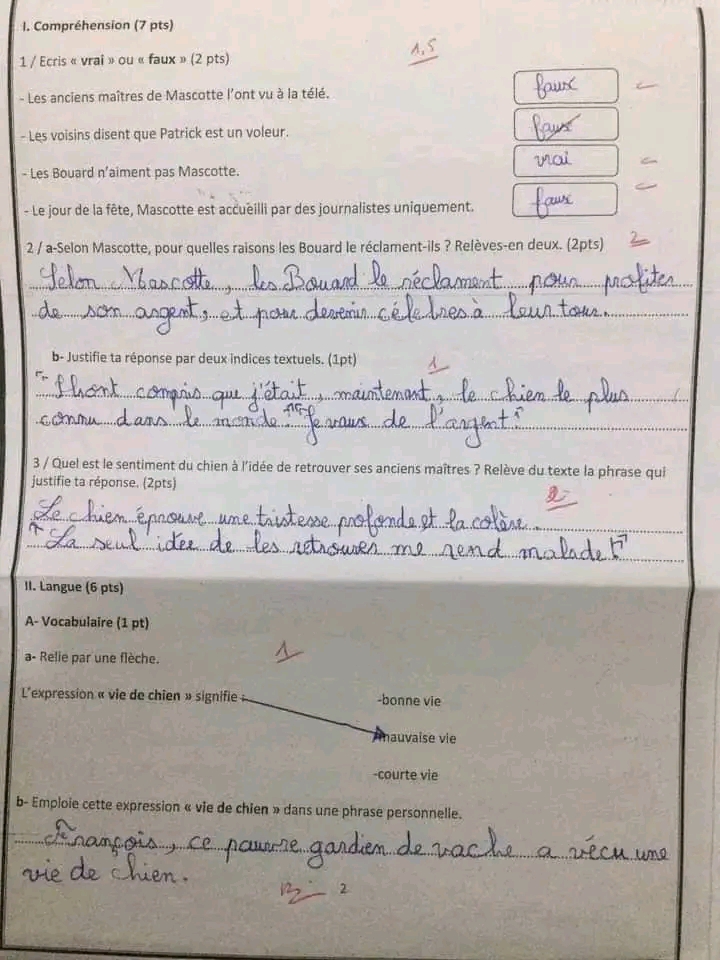 I. Compréhension (7 pts)
1 / Ecris « vrai » ou « faux » (2 pts)
1,5
- Les anciens maîtres de Mascotte l'ont vu à la télé.
faux
- Les voisins disent que Patrick est un voleur.
faux
- Les Bouard n'aiment pas Mascotte.
vrai
- Le jour de la fête, Mascotte est accueilli par des journalistes uniquement.
faux
2 / a-Selon Mascotte, pour quelles raisons les Bouard le réclament-ils ? Relèves-en deux. (2pts)
2
Selon Mascotte, les Bouard le réclament pour profiter
de son argent, et pour devenir célebres à leur tour.
b- Justifie ta réponse par deux indices textuels. (1pt)
1
" Ils ont compris que j'était, maintenant, le chien le plus
connu dans le monde. " " Je vaux de l'argent "
3 / Quel est le sentiment du chien à l'idée de retrouver ses anciens maîtres ? Relève du texte la phrase qui
justifie ta réponse. (2pts)
2
Le chien éprouve une tristesse profonde et la colère.
" La seul idée de les retrouver me rend malade ! "
II. Langue (6 pts)
A- Vocabulaire (1 pt)
a- Relie par une flèche.
1
L'expression « vie de chien » signifie :
-bonne vie
-mauvaise vie
-courte vie
b- Emploie cette expression « vie de chien » dans une phrase personnelle.
François, ce pauvre gardien de vache a vécu une
vie de chien.
2